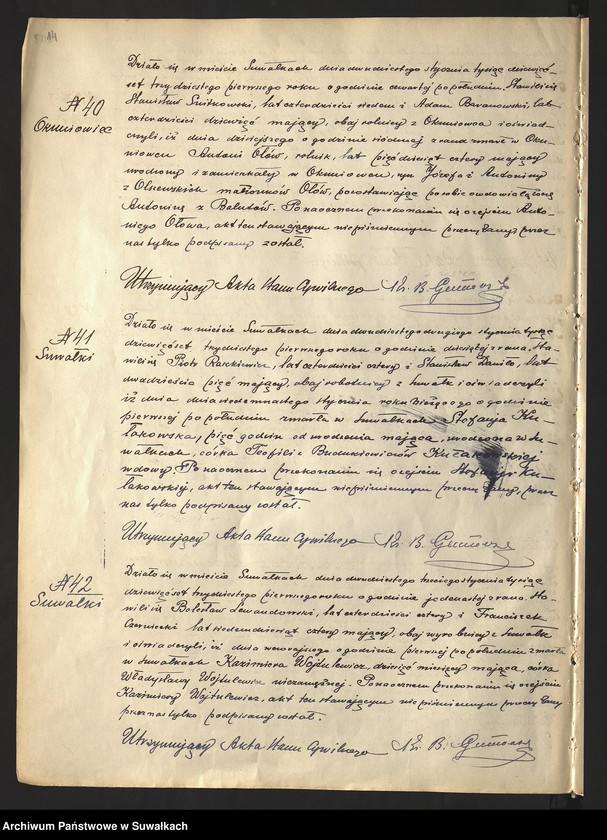 14
№ 40
Okuniowiec
Działo się w mieście Suwałkach dnia dwudziestego stycznia tysiąc dziewięć-
set trzydziestego pierwszego roku o godzinie czwartej po południu. Stawili się
Stanisław Śnitkowski, lat czterdzieści siedem i Adam Baranowski, lat
czterdzieści dziewięć mający, obaj rolnicy z Okuniowca i oświad-
czyli, iż dnia dzisiejszego o godzinie siódmej z rana zmarł w Oku-
niowcu Antoni Ołów, rolnik, lat pięćdziesiąt cztery mający
urodzony i zamieszkały w Okuniowcu, syn Józefa i Antoniny
z Olszewskich małżonków Ołów, pozostawiając po sobie owdowiałą żonę
Antoninę z Balutów. Po naocznem przekonaniu się o zejściu Anto-
niego Ołowa, akt ten stawającym niepiśmiennym przeczytany przez
nas tylko podpisany został.
Utrzymujący Akta Stanu Cywilnego Ks. B.
№ 41
Suwałki
Działo się w mieście Suwałkach dnia dwudziestego drugiego stycznia tysiąc
dziewięćset trzydziestego pierwszego roku o godzinie dziesiątej z rana. Sta-
wili się Piotr Raczkiewicz, lat czterdzieści cztery i Stanisław Daniło, lat
dwadzieścia pięć mający, obaj robotnicy z Suwałk i oświadczyli
iż dnia dwudziestego stycznia roku bieżącego o godzinie
pierwszej po południu zmarła w Suwałkach Stefanja Ku-
łakowska, pięć godzin od urodzenia mająca, urodzona w Su-
wałkach, córka Teofili z Kułakowskiej
wdowy. Po naocznem przekonaniu się o zejściu Stefanji Ku-
łakowskiej, akt ten stawającym niepiśmiennym przeczytany, przez
nas tylko podpisany został.
Utrzymujący Akta Stanu Cywilnego Ks. B.
№ 42
Suwałki
Działo się w mieście Suwałkach dnia dwudziestego trzeciego stycznia tysiąc
dziewięćset trzydziestego pierwszego roku o godzinie jedenastej z rana. Sta-
wili się Bolesław Lewandowski, lat czterdzieści cztery i Franciszek
Czarniecki lat siedemdziesiąt cztery mający, obaj wyrobnicy z Suwałk
i oświadczyli, iż dnia wczorajszego o godzinie pierwszej po południu zmarła
w Suwałkach Kazimiera Wojtulewicz, dziesięć miesięcy mająca, córka
Władysławy Wojtulewicz niezamężnej. Po naocznem przekonaniu się o zejściu
Kazimiery Wojtulewicz, akt ten stawającym niepiśmiennym przeczytany
przez nas tylko podpisany został.
Utrzymujący Akta Stanu Cywilnego Ks. B.
Archiwum Państwowe w Suwałkach